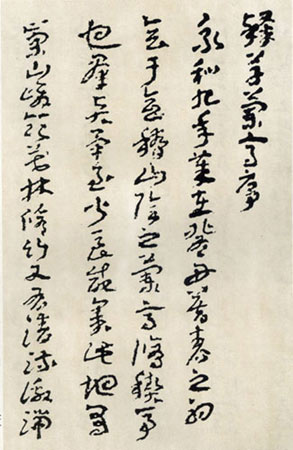 釋草蘭亭序
永和九年歲在癸丑暮春之初
會于會稽山陰之蘭亭脩禊事
也羣賢畢至少長咸集此地有
崇山峻領茂林脩竹又有清流激湍